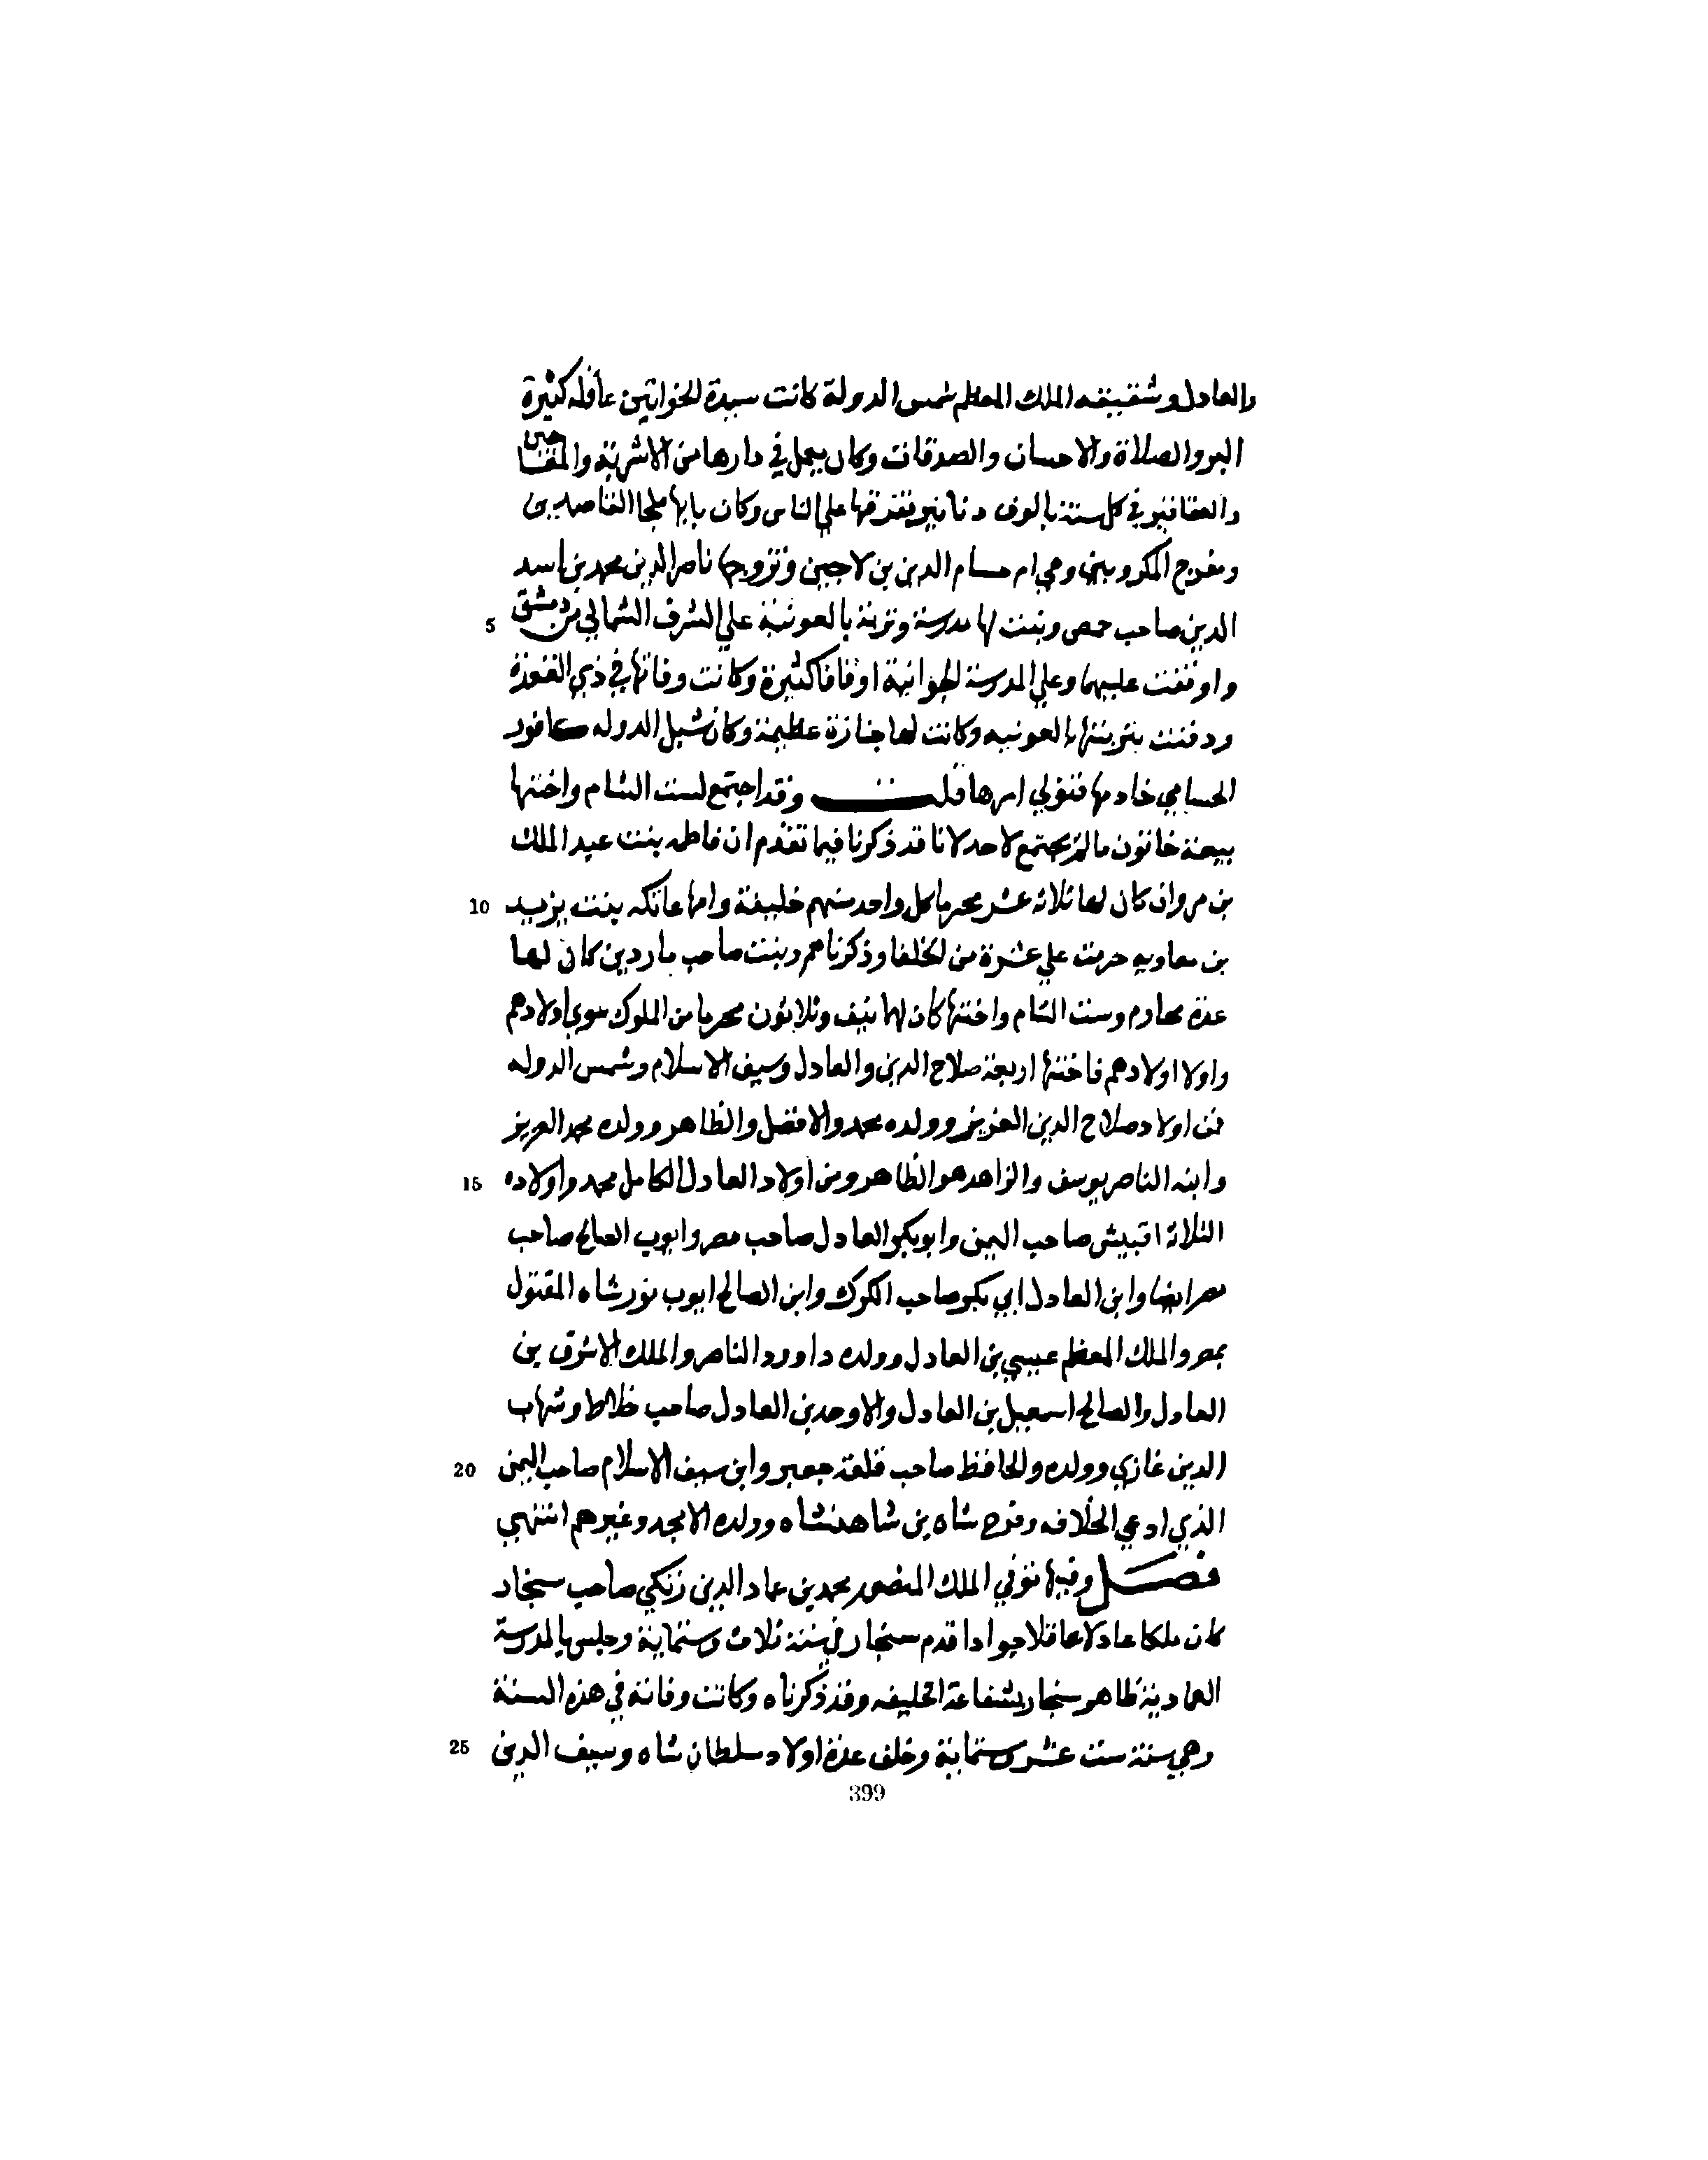 والعادل وشقيقه الملك المعظم شمس الدولة كانت سيدة الخواتين عاقله كثيرة
البر والصلاة والاحسان والصدقات وكان يعمل في دارها من الاشربة والمعاجين
والعقاقير في كل سنة بالوف دنانير وتفرقها علي الناس وكان بابها ملجا القاصدين
ومفرج المكروبين وهي ام حسام الدين بن لاجين وتزوجها ناصر الدين محمد بن اسد
5 الدين صاحب حمص وبنت لها مدرسة وتربة بالعونية علي الشرف الشمالي من دمشق
واوقفت عليهما وعلي المدرسة الجوانية اوقافا كثيرة وكانت وفاتها في ذي القعدة
ودفنت بتربتها بالعونيه وكانت لها جنازة عظيمة وكان شبل الدوله كافور
الحسامي خادمها فتولي امرها قلت وقد اجتمع لست الشام واختها
ربيعة خاتون ما لم يجتمع لاحد لانا قد ذكرنا فيما تقدم ان فاطمه بنت عبد الملك
10 بن مروان كان لها ثلاثه عشر محرما كل واحد منهم خليفة وامها عاتكه بنت يزيد
بن معاويه حرمت علي عشرة من الخلفا وذكرناهم وبنت صاحب ماردين كان لها
عدة محارم وست الشام واختها كان لهما نيف وثلاثون محرما من الملوك سوي اولادهم
واولاد اولادهم فاخوتها اربعة صلاح الدين والعادل وسيف الاسلام وشمس الدوله
فمن اولاد صلاح الدين العزيز وولده محمد والافضل والظاهر وولده محمد العزيز
15 وابنه الناصر يوسف والزاهد هو الظاهر ومن اولاد العادل الكامل محمد واولاده
الثلاثه اقسيس صاحب اليمن وابو بكر العادل صاحب مصر وايوب الصالح صاحب
مصر ايضا وابن العادل ابي بكر صاحب الكرك وابن الصالح ايوب تورشاه المقتول
بمصر والملك المعظم عيسي بن العادل وولده داوود الناصر والملك الاشرف بن
العادل والصالح اسمعيل بن العادل والاوحد بن العادل صاحب خلاط وشهاب
20 الدين غازي وولده والحافظ صاحب قلعة جعبر وابن سيف الاسلام صاحب اليمن
الذي ادعي الخلافه وفرخ شاه بن شاهنشاه وولده الامجد وغيرهم انتهي
فصل وفيها توفي الملك المنصور محمد بن عماد الدين زنكي صاحب سنجار
كان ملكا عادلا عاقلا جوادا قدم سنجار في سنة ثلاث وستماية وجلس بالمدرسة
العمادية ظاهر سنجار بشفاعة الخليفه وقد ذكرناه وكانت وفاته في هذه السنة
25 وهي سنة ست عشر وستماية وخلف عدة اولاد سلطان شاه وسيف الدين
399